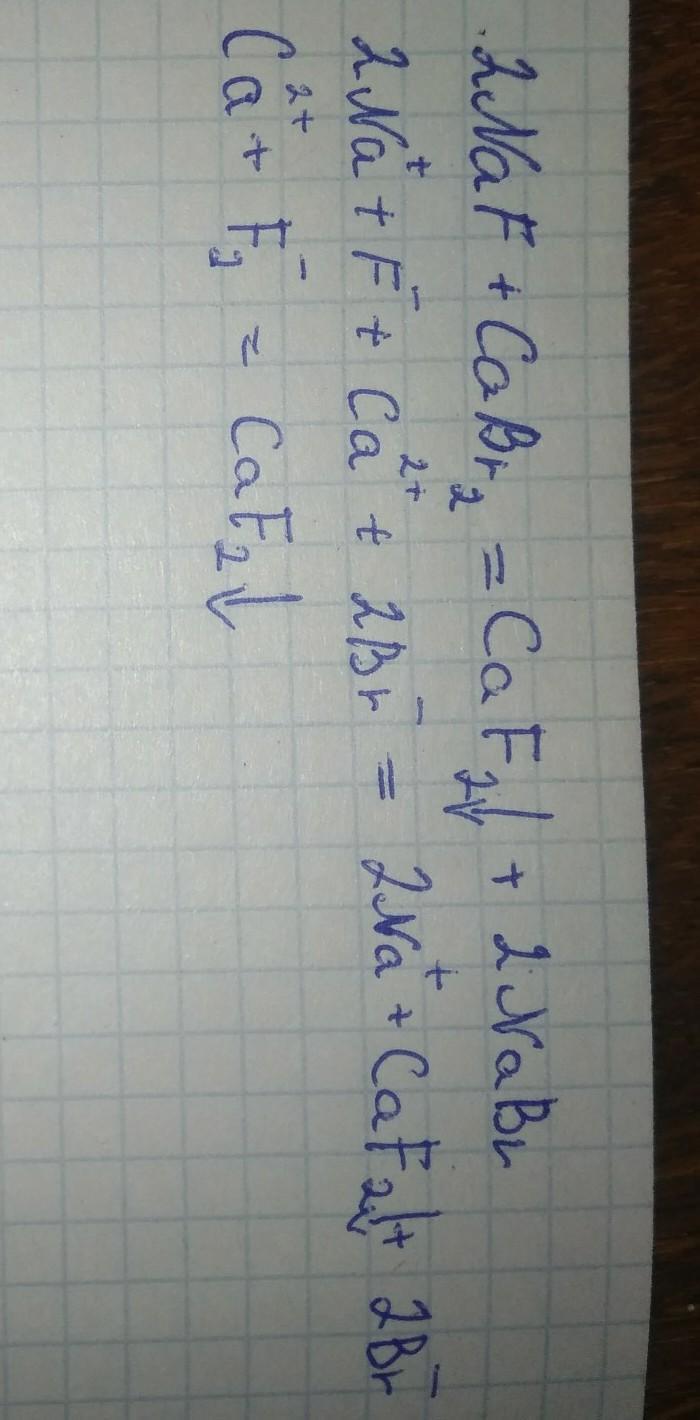 2NaF + CaBr₂ = CaF₂↓ + 2NaBr
2Na⁺ + F⁻ + Ca²⁺ + 2Br⁻ = 2Na⁺ + CaF₂↓ + 2Br⁻
Ca²⁺ + F₂⁻ = CaF₂↓